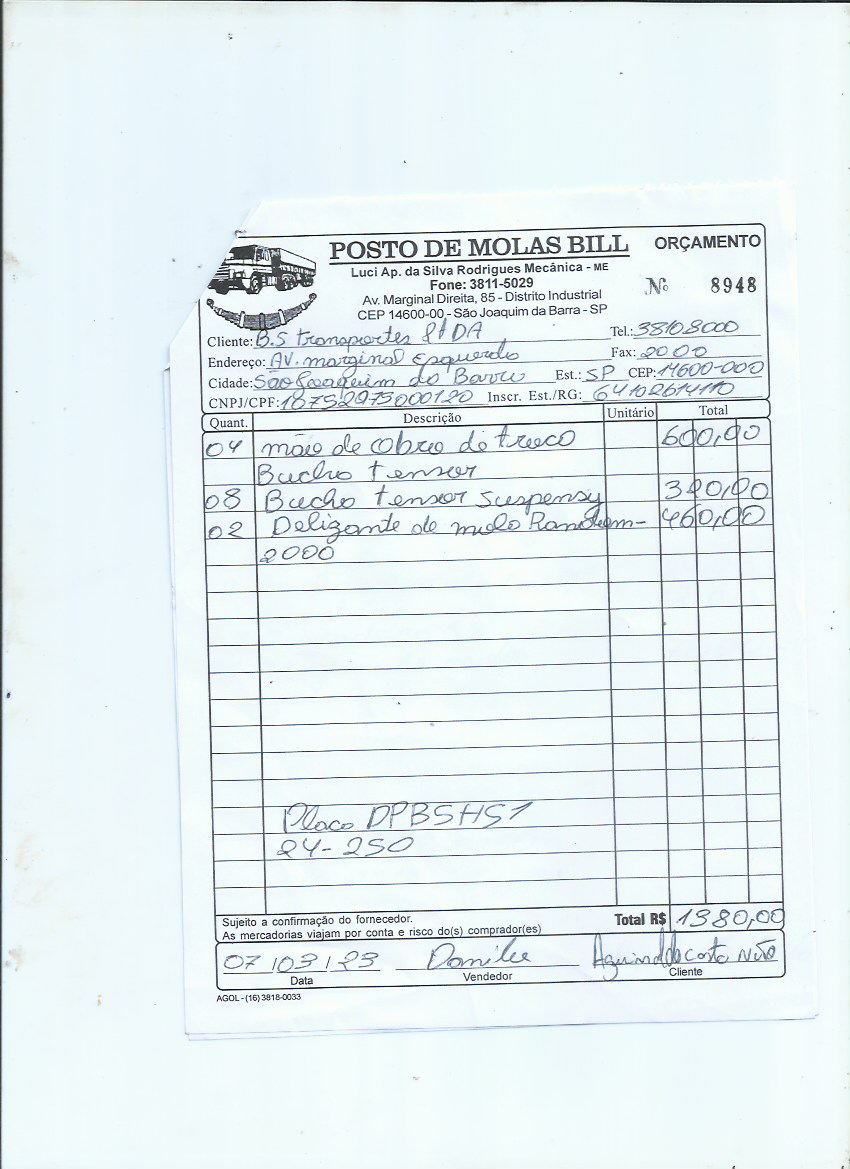 POSTO DE MOLAS BILL
ORÇAMENTO
Luci Ap. da Silva Rodrigues Mecânica - ME
Fone: 3811-5029
Nº 8948
Av. Marginal Direita, 85 - Distrito Industrial
CEP 14600-00 - São Joaquim da Barra - SP
Cliente: B.S transportes LtDA Tel.: 38108000
Endereço: AV. marginal Esquerdo Fax: 2000
Cidade: São Joaquim da Barra Est.: SP CEP: 14600-000
CNPJ/CPF: 10752975000120 Inscr. Est./RG: 64102614110
Quant. Descrição Unitário Total
04 mão de obra de troca 600,00
Bucha tensor
08 Bucha tensor Suspensy 320,00
02 Delizante de mola Randem- 460,00
2000
Placa DPB5H51
24-250
Sujeito a confirmação do fornecedor.
As mercadorias viajam por conta e risco do(s) comprador(es)
Total R$ 1380,00
07/03/23 Danilee
Data Vendedor Cliente
AGOL - (16) 3818-0033